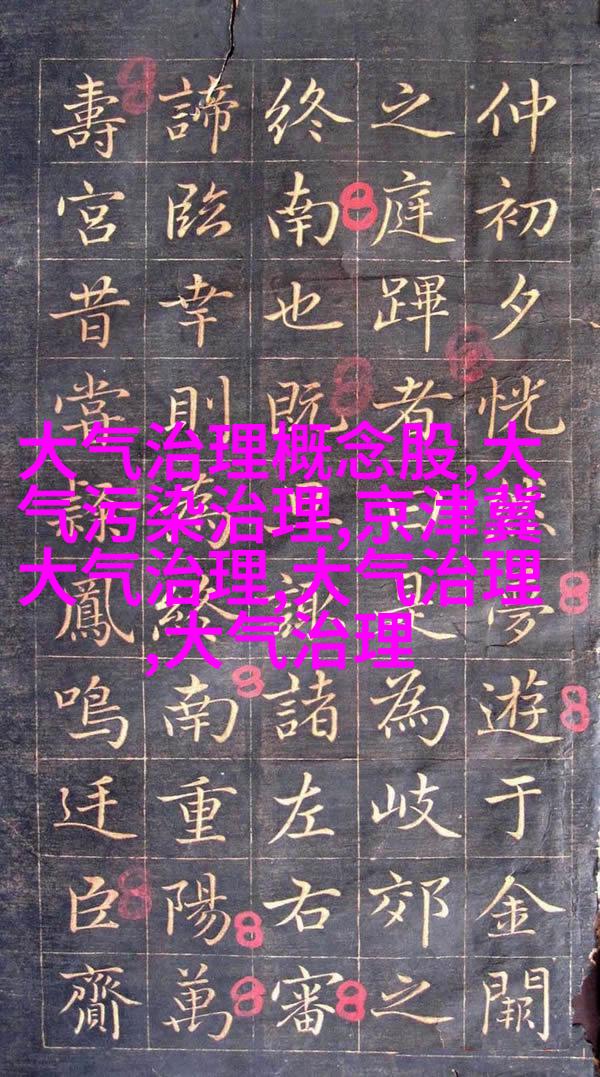 仲初夕恍然夢遊于金闕
之庭蹕者是為岐郊之
終南也既諸左右審
諦臨幸則終南重陽萬
壽宮昔常詔鳳鳴廷臣齎
大气治理概念股,大
气污染治理,京津冀
大气治理,大气治理
,大气治理